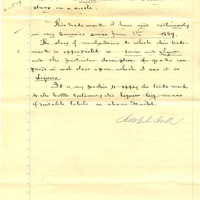 stars in a circle.
This trade mark I have used continuously
in my business since June 1st 1889.
The class of merchandise to which this trade
mark is appropriated is Wines and Liquors,
and the particular description of goods comprised
in such class upon which I use it is
Liquors.
It is my practice to apply the trade mark
to the bottles containing the liquors by means
of suitable labels as above stated.